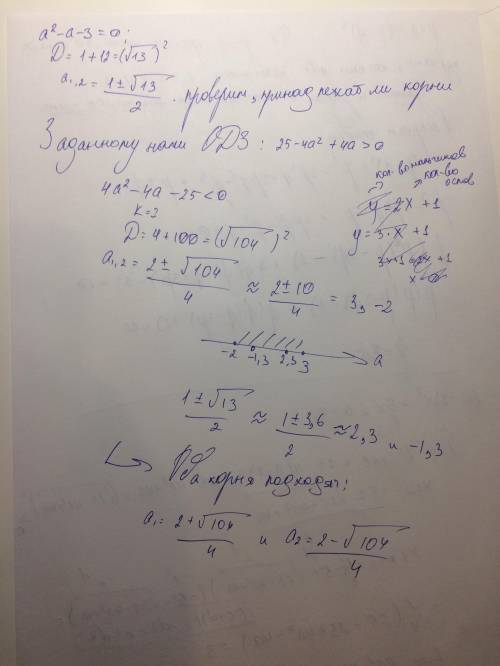 a² - a - 3 = 0;
D = 1 + 12 = (√13)²
a₁,₂ = (1 ± √13)/2 . проверим, принадлежат ли корни
Заданному нами ОДЗ: 25 - 4a² + 4a > 0
4a² - 4a - 25 < 0
D = 4 + 100 = (√104)²
a₁,₂ = (2 ± √104)/4 ≈ (2 ± 10)/4 = 3, -2
кол-во мальчиков
кол-во
ослов
y = 2x + 1
y = 3·x + 1
-2 -1,3 2,3 3 a
(1 ± √13)/2 ≈ (1 ± 3,6)/2 ≈ 2,3 и -1,3
↳ Оба корня подходят:
a₁ = (2 + √104)/4 и a₂ = (2 - √104)/4